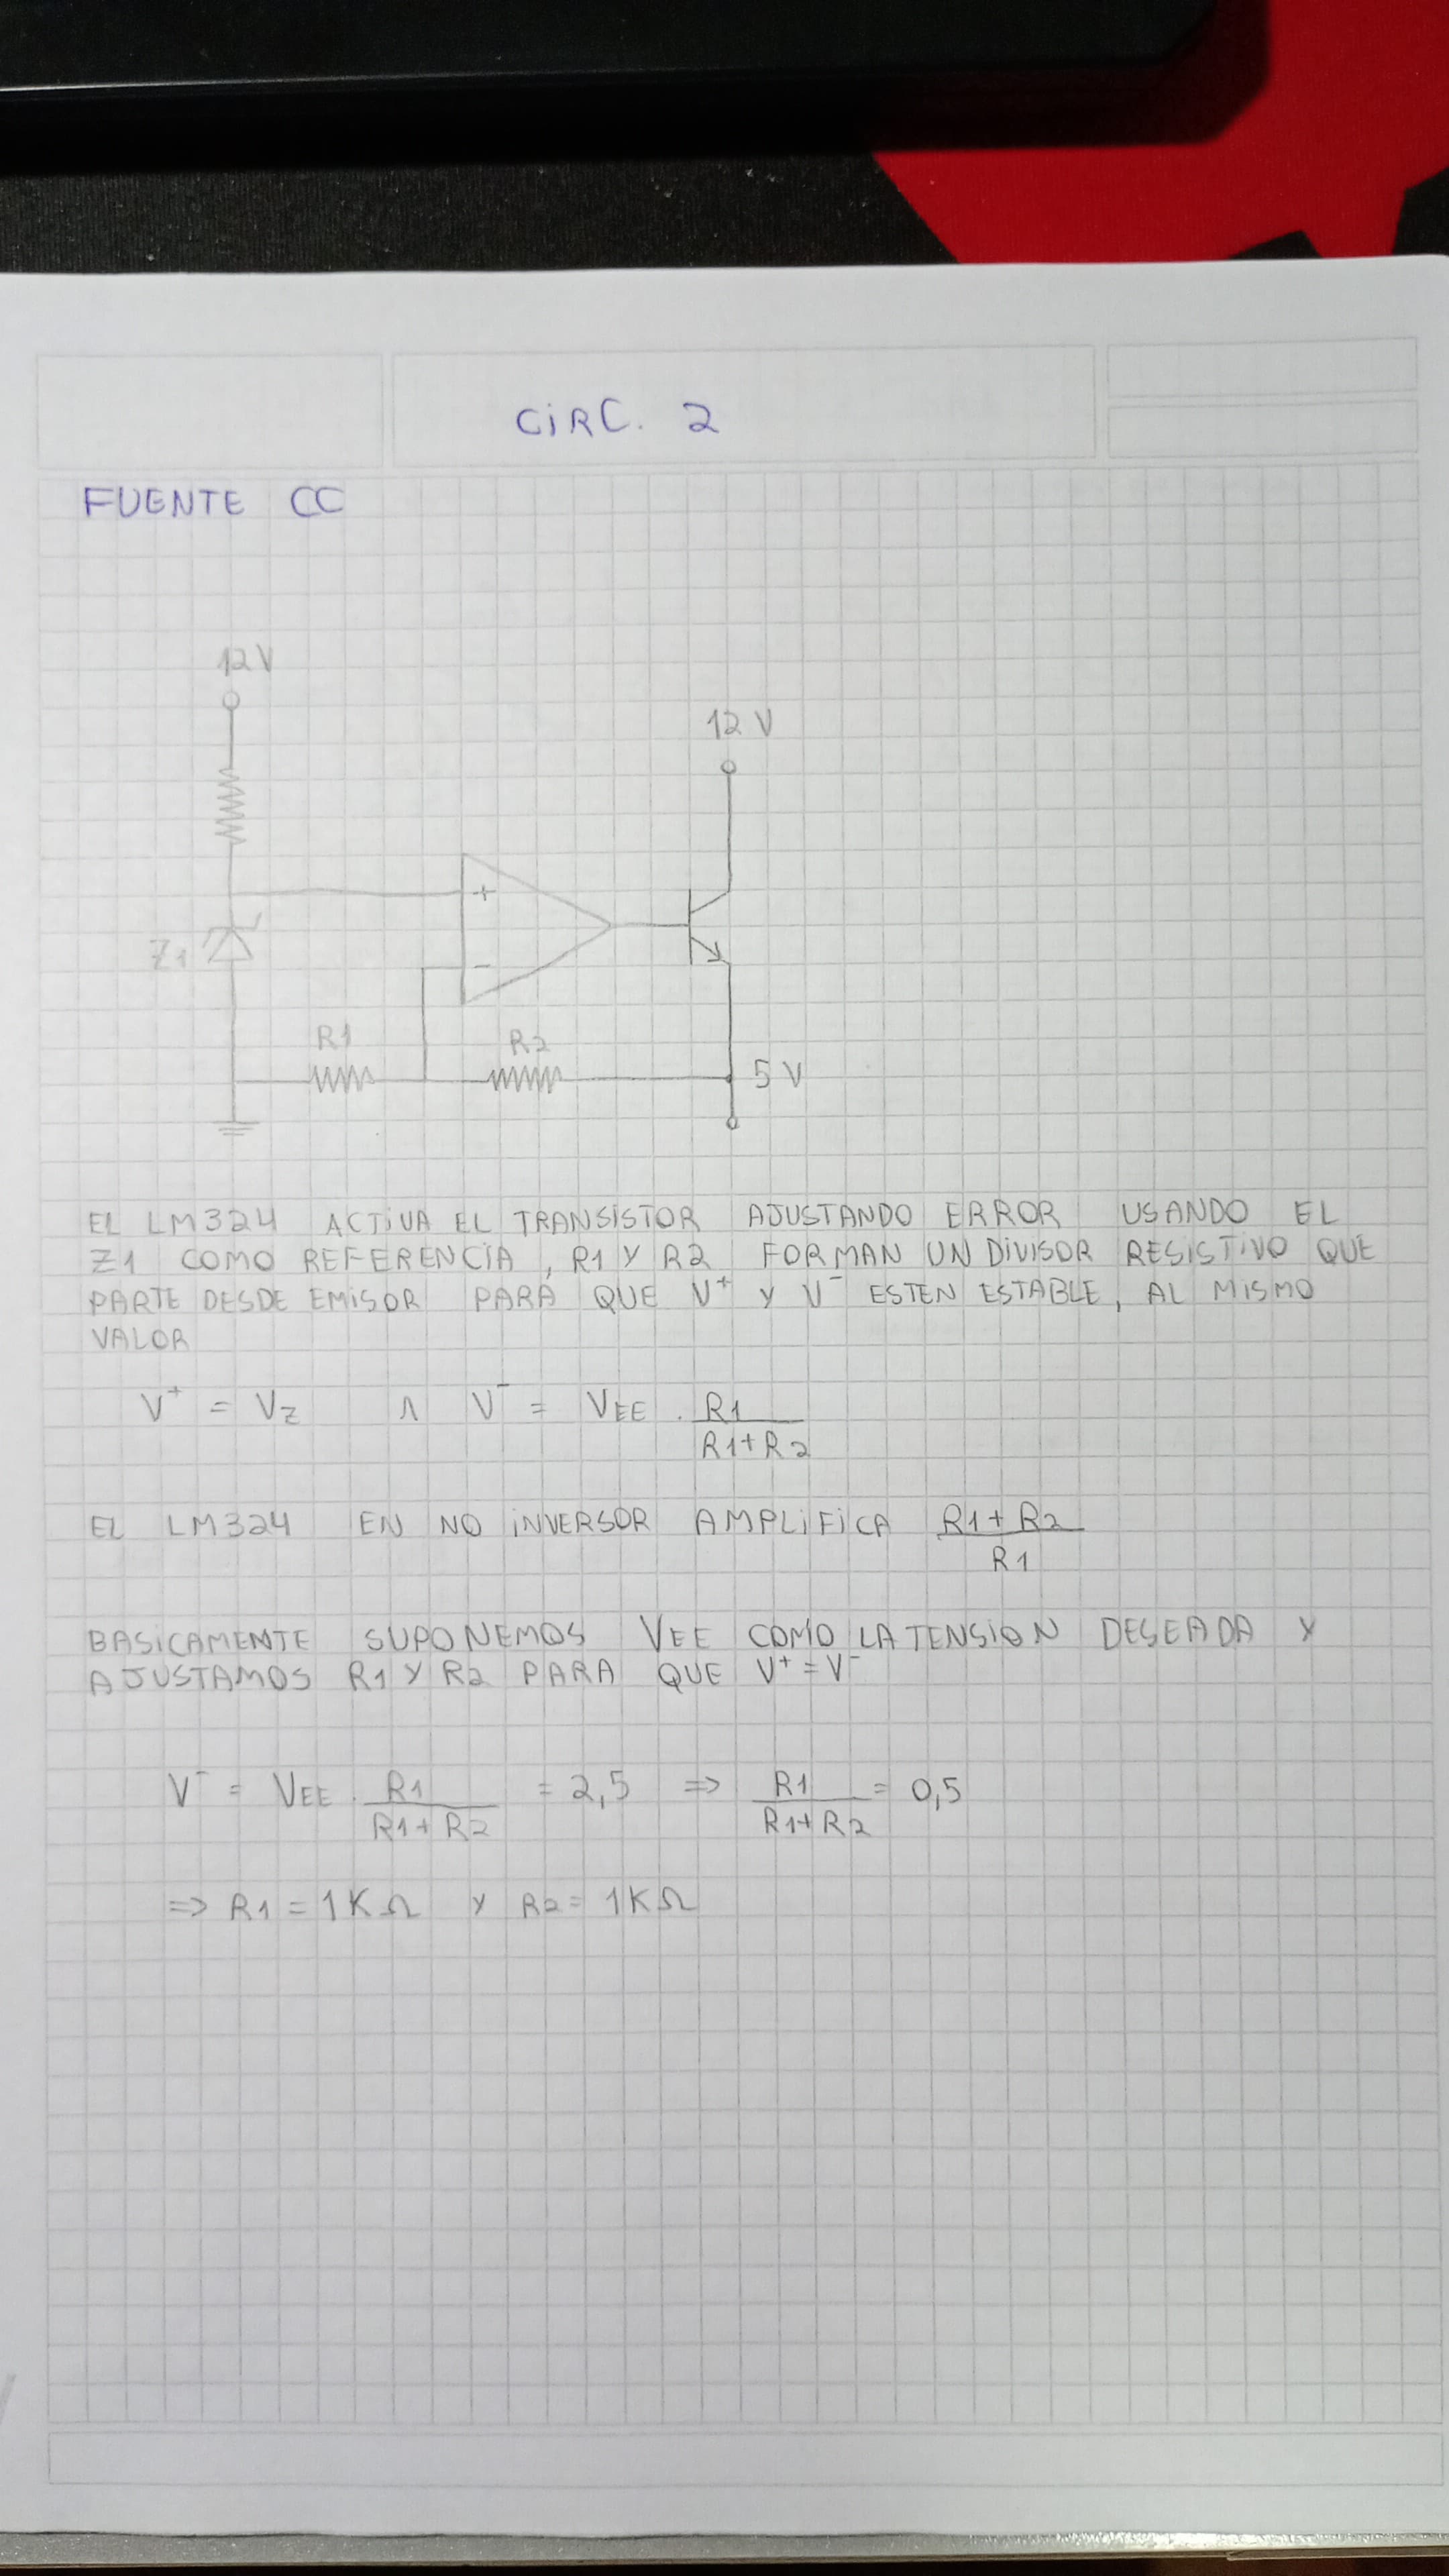 CIRC. 2
FUENTE CC
12V
12 V
+
Z1
-
R1
R2
5 V
EL LM324 ACTIVA EL TRANSISTOR AJUSTANDO ERROR USANDO EL
Z1 COMO REFERENCIA, R1 Y R2 FORMAN UN DIVISOR RESISTIVO QUE
PARTE DESDE EMISOR PARA QUE V⁺ Y V⁻ ESTEN ESTABLE, AL MISMO
VALOR
V⁺ = VZ ∧ V⁻ = VEE . R1 / R1+R2
EL LM324 EN NO INVERSOR AMPLIFICA R1+R2 / R1
BASICAMENTE SUPONEMOS VEE COMO LA TENSION DESEADA Y
AJUSTAMOS R1 Y R2 PARA QUE V⁺=V⁻
V⁻ = VEE . R1 / R1+R2 = 2,5 => R1 / R1+R2 = 0,5
=> R1 = 1KΩ Y R2 = 1KΩ